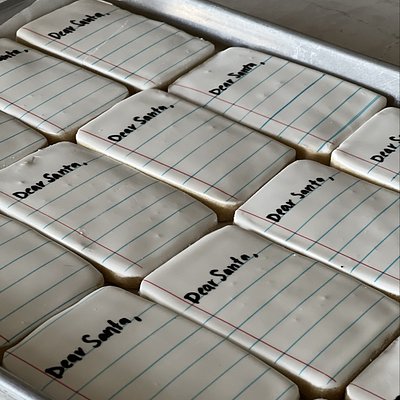 Dear Santa,
Dear Santa,
Dear Santa,
Dear Santa,
Dear Santa,
Dear Santa,
Dear Santa,
Dear Santa,